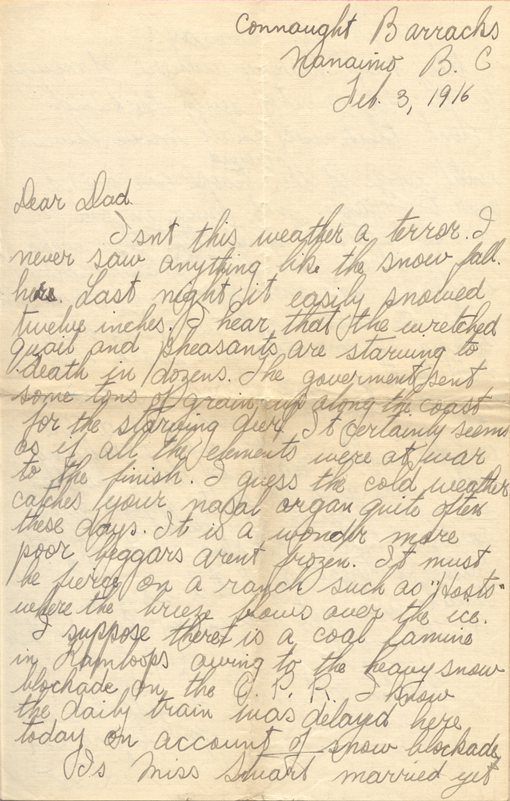 Connaught Barracks
Nanaimo B. C
Feb. 3, 1916
Dear Dad
Isnt this weather a terror. I
never saw anything like the snow fall.
here. Last night it easily snowed
twelve inches. I hear that the wretched
quail and pheasants are starving to
death in dozens. The goverment sent
some tons of grain up along the coast
for the starving deer. It certainly seems
as if all the elements were at war
to the finish. I guess the cold weather
catches your nasal organ quite often
these days. It is a wonder more
poor beggars arent frozen. It must
be fierce on a ranch such as "Hosts"
where the breeze blows over the ice.
I suppose there is a coal famine
in Kamloops owing to the heavy snow
blockade on the C. P. R. I know
the daily train was delayed here
today on account of snow blockade,
Is Miss Smart married yet